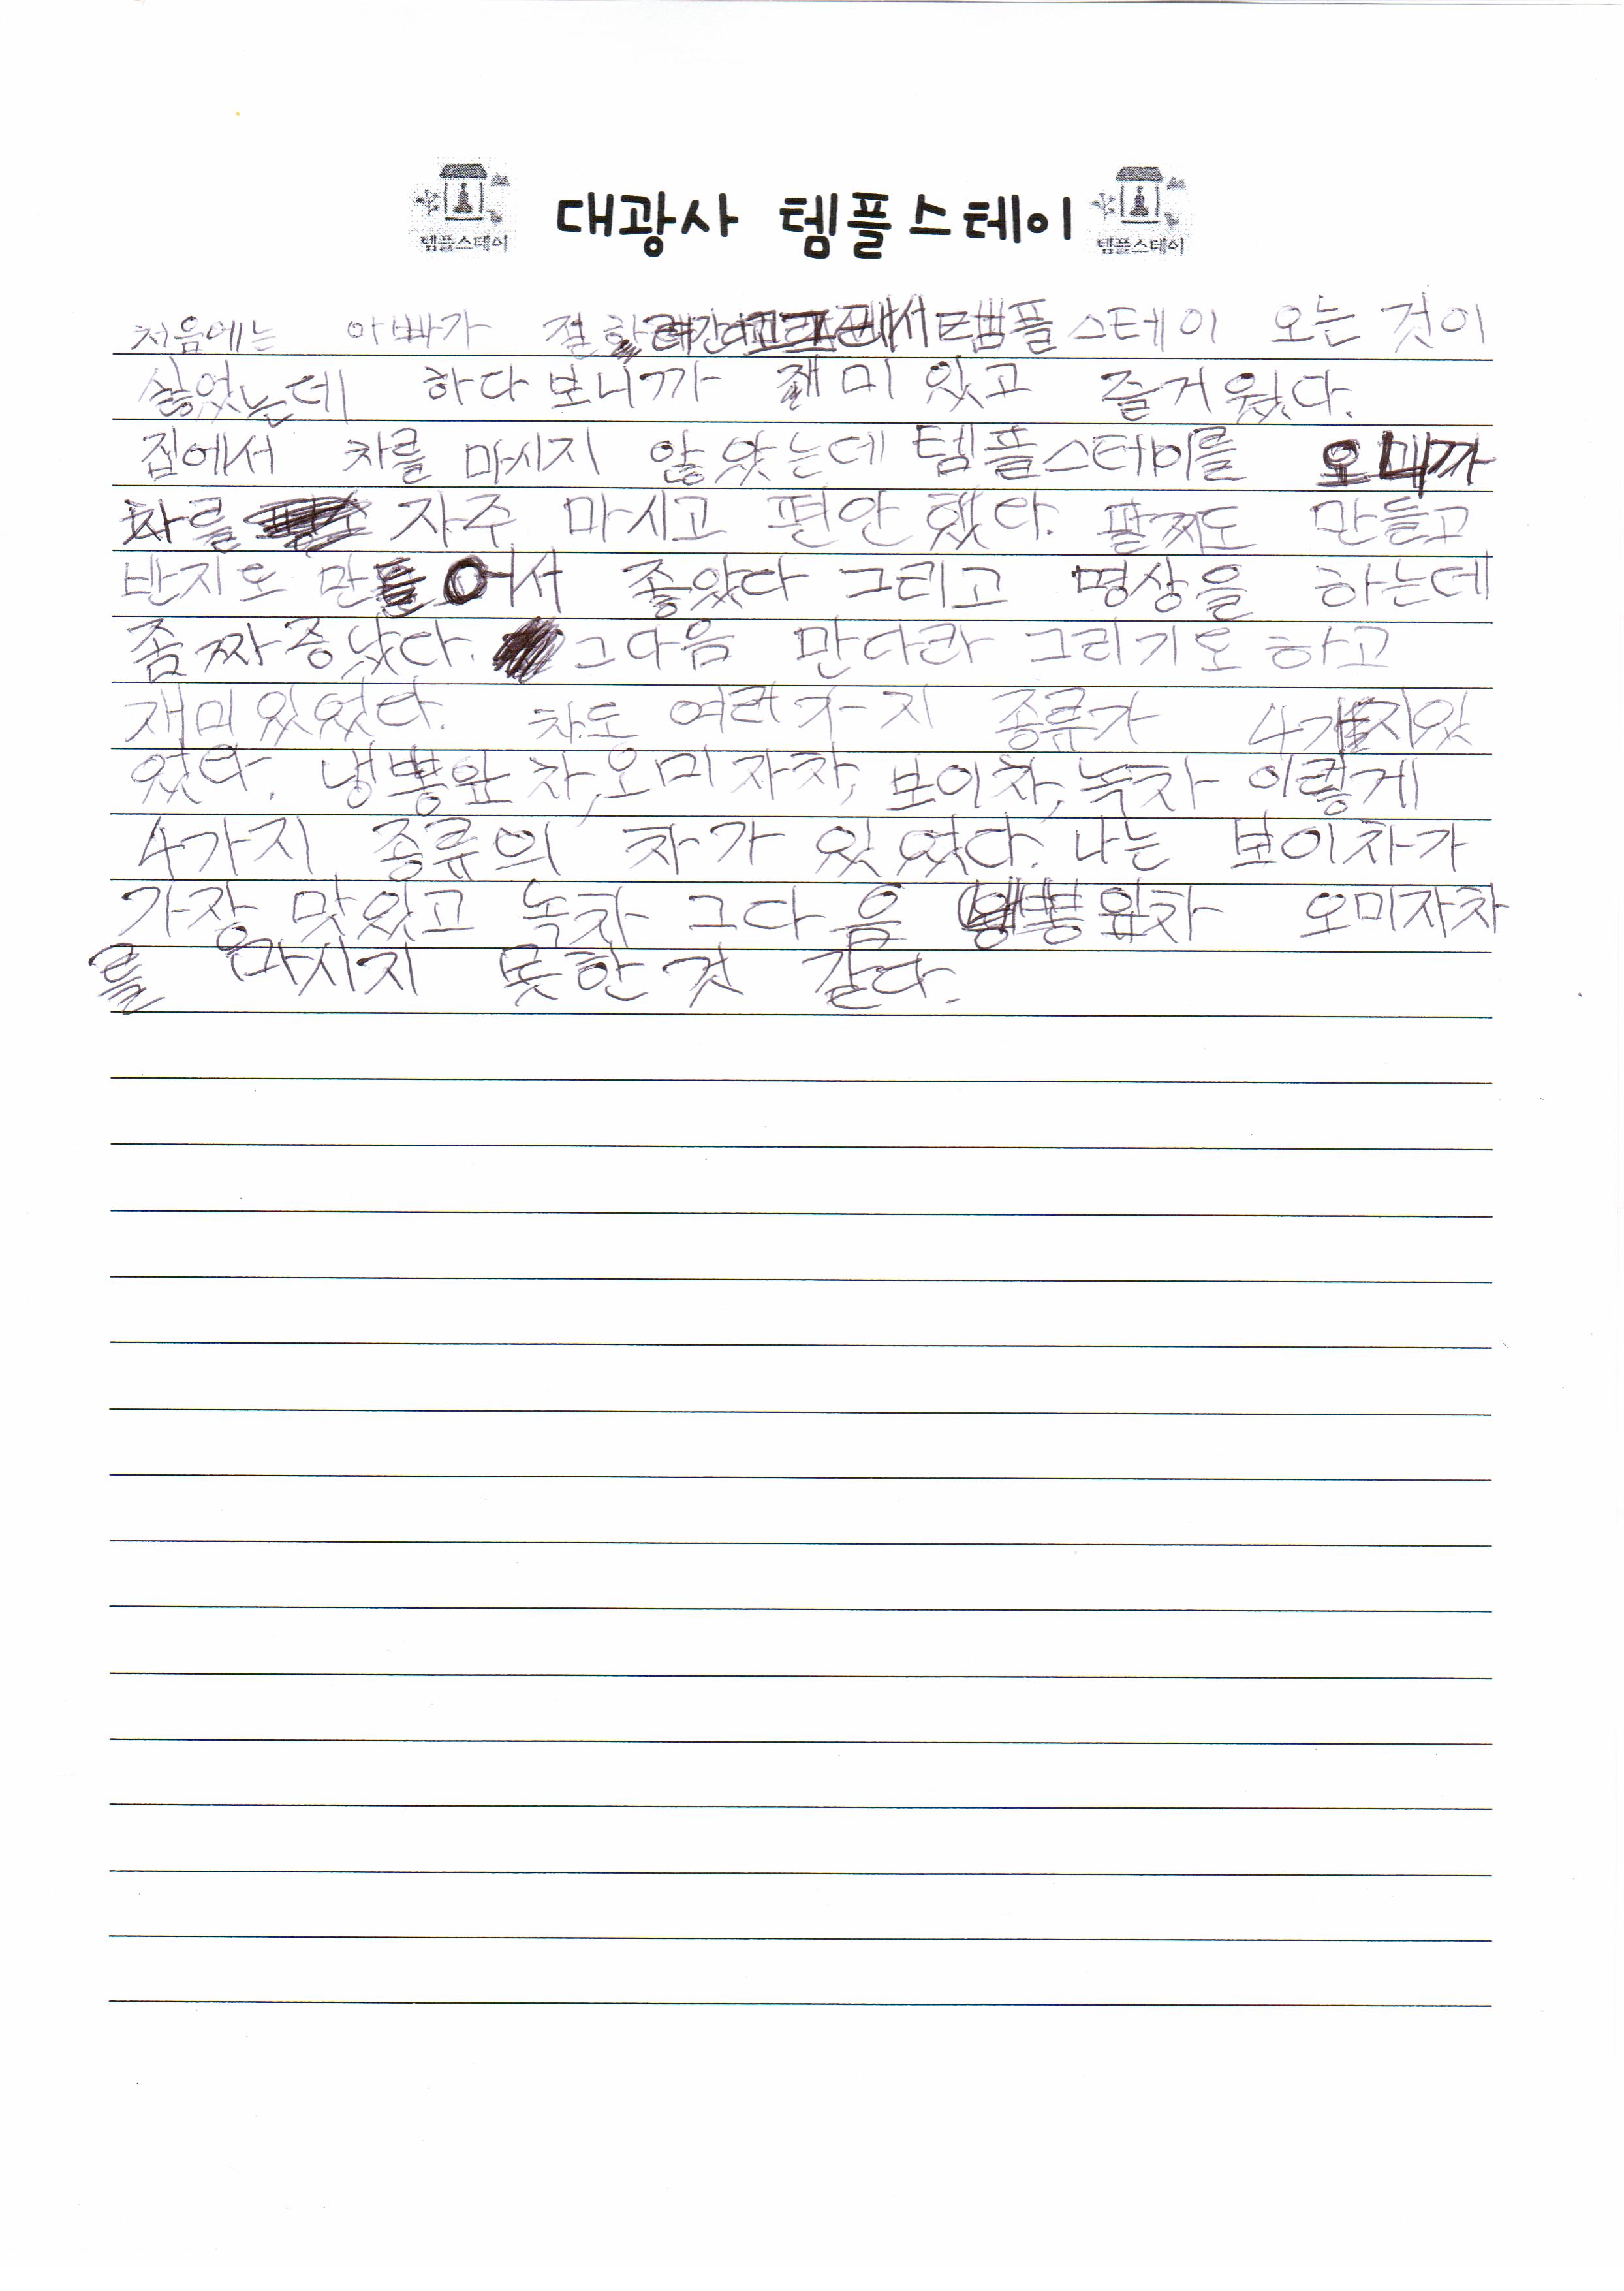 템플스테이 대광사 템플스테이 템플스테이
처음에는 아빠가 절 템플스테이 오는 것이
싫었는데 하다보니까 재미있고 즐거웠다.
집에서 차를 마시지 않았는데 템플스테이를 오니까
차를 자주 마시고 편안했다. 팔찌도 만들고
반지도 만들어서 좋았다 그리고 명상을 하는데
좀 짜증났다. 그다음 만다라 그리기도 하고
재미있었다. 차도 여러가지 종류가 4가지있
었다. 냉뽕잎차, 오미자차, 보이차, 녹차 이렇게
4가지 종류의 차가 있었다. 나는 보이차가
가장 맛있고 녹차 그다음 냉뽕잎차 오미자차
를 마시지 못한것 같다.